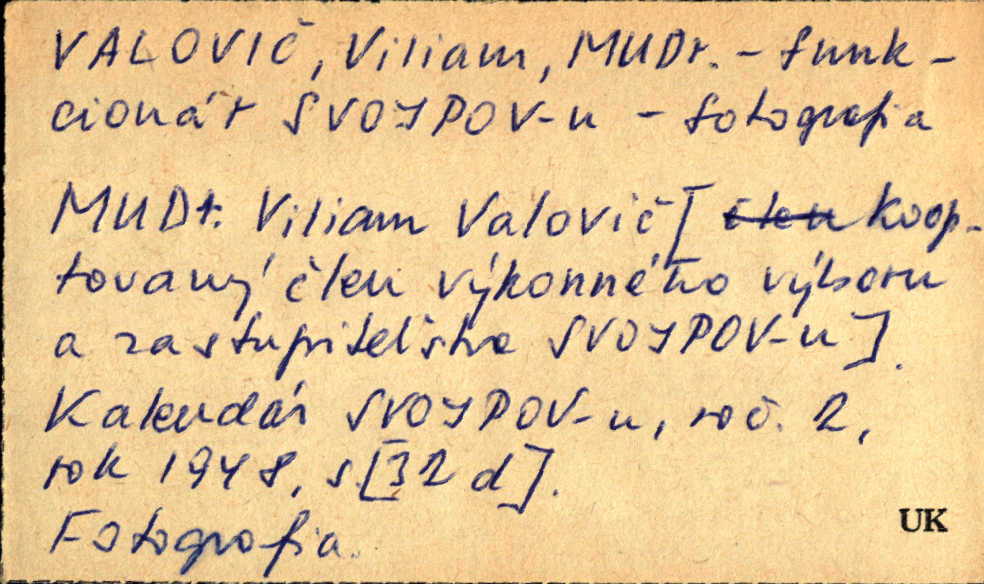 VALOVIČ, Viliam, MUDr. - funk-
cionár SVOJPOV-u - fotografia
MUDr. Viliam Valovič [člen koop-
tovaný člen výkonného výboru
a zastupiteľstva SVOJPOV-u].
Kalendár SVOJPOV-u, roč. 2,
rok 1948, s. [32 d].
Fotografia.
UK